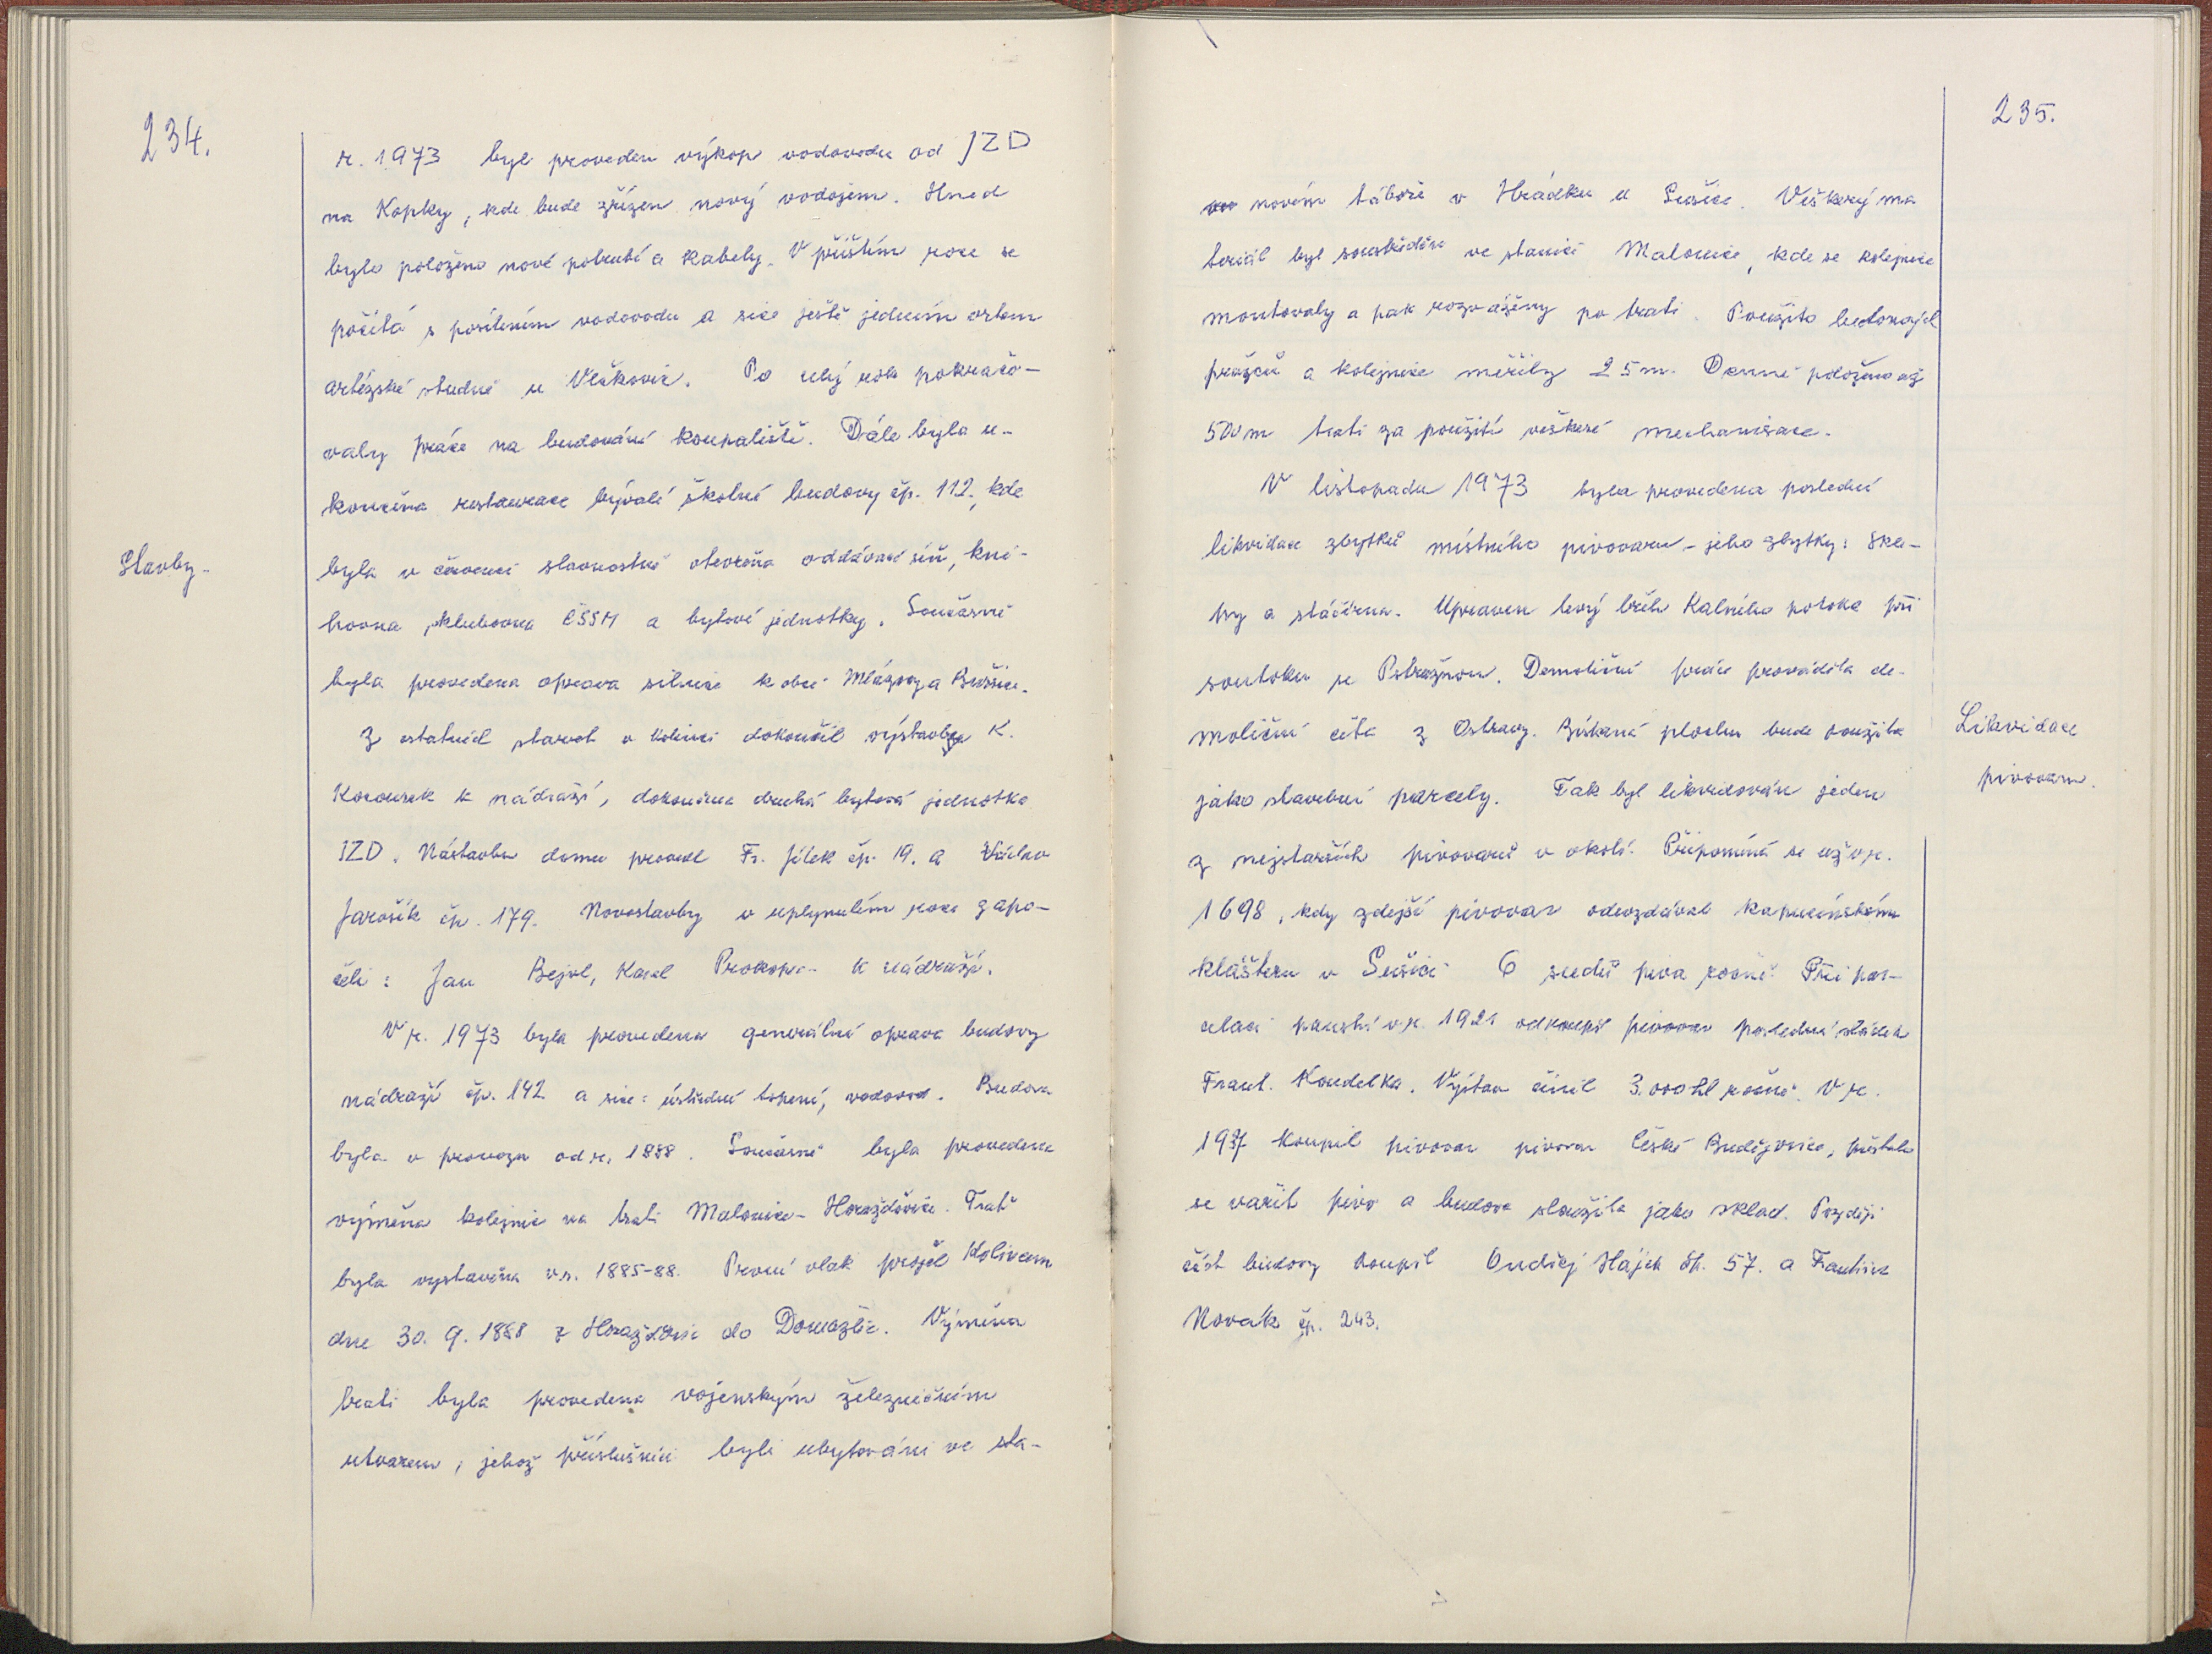 234.
r. 1973 byl proveden výkop vodovodu od JZD
na Kopky, kde bude zřízen nový vodojem. Hned
bylo položeno nové potrubí a kabely. V příštím roce se
počítá s posílením vodovodu a sice ještě jedním vrtem
artézské studně u Vlčkovic. Po celý rok pokračo-
valy práce na budování koupaliště. Dále byla u-
končena restaurace bývalé školní budovy čp. 112, kde
Stavby.
byla v červenci slavnostně otevřena oddávací síň, kni-
hovna, klubovna ČSSM a bytové jednotky. Současně
byla provedena oprava silnice k obci Mlázovy a Brčice.
Z ostatních staveb v Kolinci dokončil výstavbu K.
Kocourek k nádraží, dokončena druhá bytová jednotka
JZD. Nástavbu domu provedl Fr. Jílek čp. 19. a Václav
Jarošík čp. 179. Novostavby v uplynulém roce zapo-
čali: Jan Bejvl, Karel Prokop - k nádraží.
V r. 1973 byla provedena generální oprava budovy
nádraží čp. 142 a sice: ústřední topení, vodovod. Budova
byla v provozu od r. 1888. Současně byla provedena
výměna kolejnic na trati Malonice - Horažďovice. Trať
byla vystavěna v r. 1885-88. První vlak projel Kolincem
dne 30. 9. 1888 z Horažďovic do Domažlic. Výměna
trati byla provedena vojenským železničním
útvarem, jehož příslušníci byli ubytováni ve sta-
235.
novém táboře v Hrádku u Sušice. Veškerý ma
teriál byl soustředěn ve stanici Malonice, kde se kolejnice
montovaly a pak rozváženy po trati. Použito betonových
pražců a kolejnice měřily 25 m. Denně položeno až
500 m trati za použití veškeré mechanisace.
V listopadu 1973 byla provedena poslední
likvidace zbytků místního pivovaru - jeho zbytky: skle-
py a stáčírna. Upraven levý břeh Kalného potoka při
soutoku se Ostružnou. Demoliční práce prováděla de-
moliční četa z Ostravy. Získaná plocha bude využita
Likvidace
pivovaru.
jako stavební parcely. Tak byl likvidován jeden
z nejstarších pivovarů v okolí. Připomíná se už v r.
1698, kdy zdejší pivovar odevzdával kapucínskému
klášteru v Sušici 6 sudů piva ročně. Při par-
celaci panství v r. 1921 odkoupil pivovar poslední sládek
Frant. Koudelka. Výstav činil 3.000 hl ročně. V r.
1937 koupil pivovar pivovar České Budějovice, přestalo
se vařit pivo a budova sloužila jako sklad. Později
část budovy koupil Ondřej Hájek čp. 57. a František
Novák čp. 243.